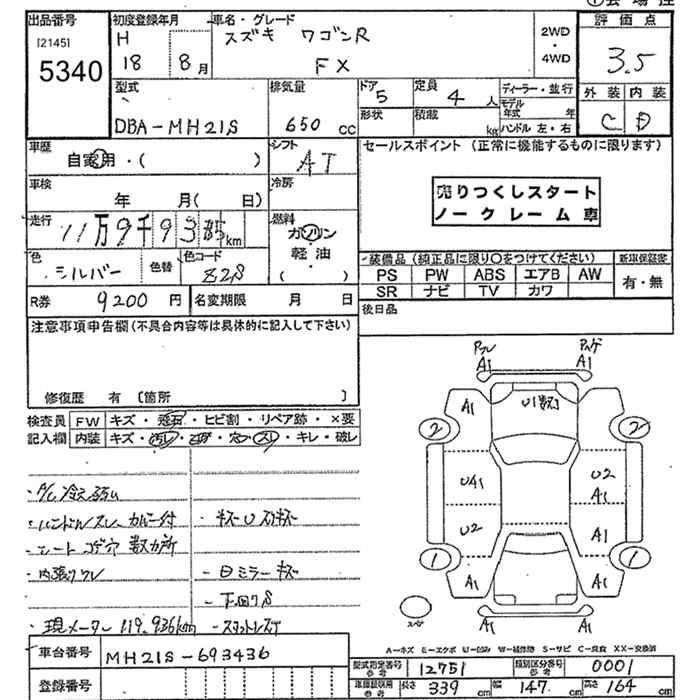 出品番号
[2145]
5340
初度登録年月
H
18 8月
車名・グレード
スズキ ワゴンR
FX
2WD
・
4WD
評価点
3.5
外装 内装
C D
型式
DBA-MH21S
排気量
650 cc
ドア
5
形状
定員
4 人
積載
kg
ディーラー・並行
モデル
年式 年
ハンドル 左・右
車歴
自家用・( )
シフト
AT
車検
年 月( 日)
冷房
走行
11万9千93
km
燃料
ガソリン
軽油
( )
色
シルバー
色替
色コード
Z2S
R券 9200円
名変期限 月 日
セールスポイント (正常に機能するものに限ります)
売りつくしスタート
ノークレーム車
装備品 (純正品に限り○をつけてください)
PS PW ABS エアB AW
SR ナビ TV カワ
新車保証書
有・無
後日品
注意事項申告欄 (不具合内容等は具体的に記入して下さい)
修復歴 有 〔箇所 〕
検査員
記入欄
FW キズ・飛石・ヒビ割・リペア跡・×要
内装 キズ・汚レ・コゲ・穴・スレ・キレ・破レ
・A/C冷え弱い
・ハンドルスレ カバー付
・シート コゲ穴 数カ所
・内張りワレ
・現メーター 119,936km
・キズU スリキズ
・日ミラーキズ
・下回りS
・スタットレスタイヤ
A1 A1
A1 U数コ
2 2
U41 U2
A1
U2 A1
1 1
A1 A1
A1 A1
スペア
A-キズ E-エクボ U-凹み W-補修跡 S-サビ C-腐食 XX-交換済
車台番号
MH21S-693436
登録番号
型式指定番号
参考
12751
類別区分番号
参考
0001
車両諸元用
参考
長さ 339 cm 幅 147 cm 高さ 164 cm